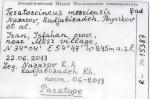 Зоологический Музей Московского университета
Teratoscincus mesriensis
Nazarov, Radjabizadeh, Poyarkov et al.
Iran, Isfahan prov.
near Mesr village,
N 34°04' E 54°47' h=845 m a.s.l.
22.06.2013
Leg. Nazarov R.A.
Radjabizadeh Kh.
nom. 06-2013
Paratype
Rad
R-